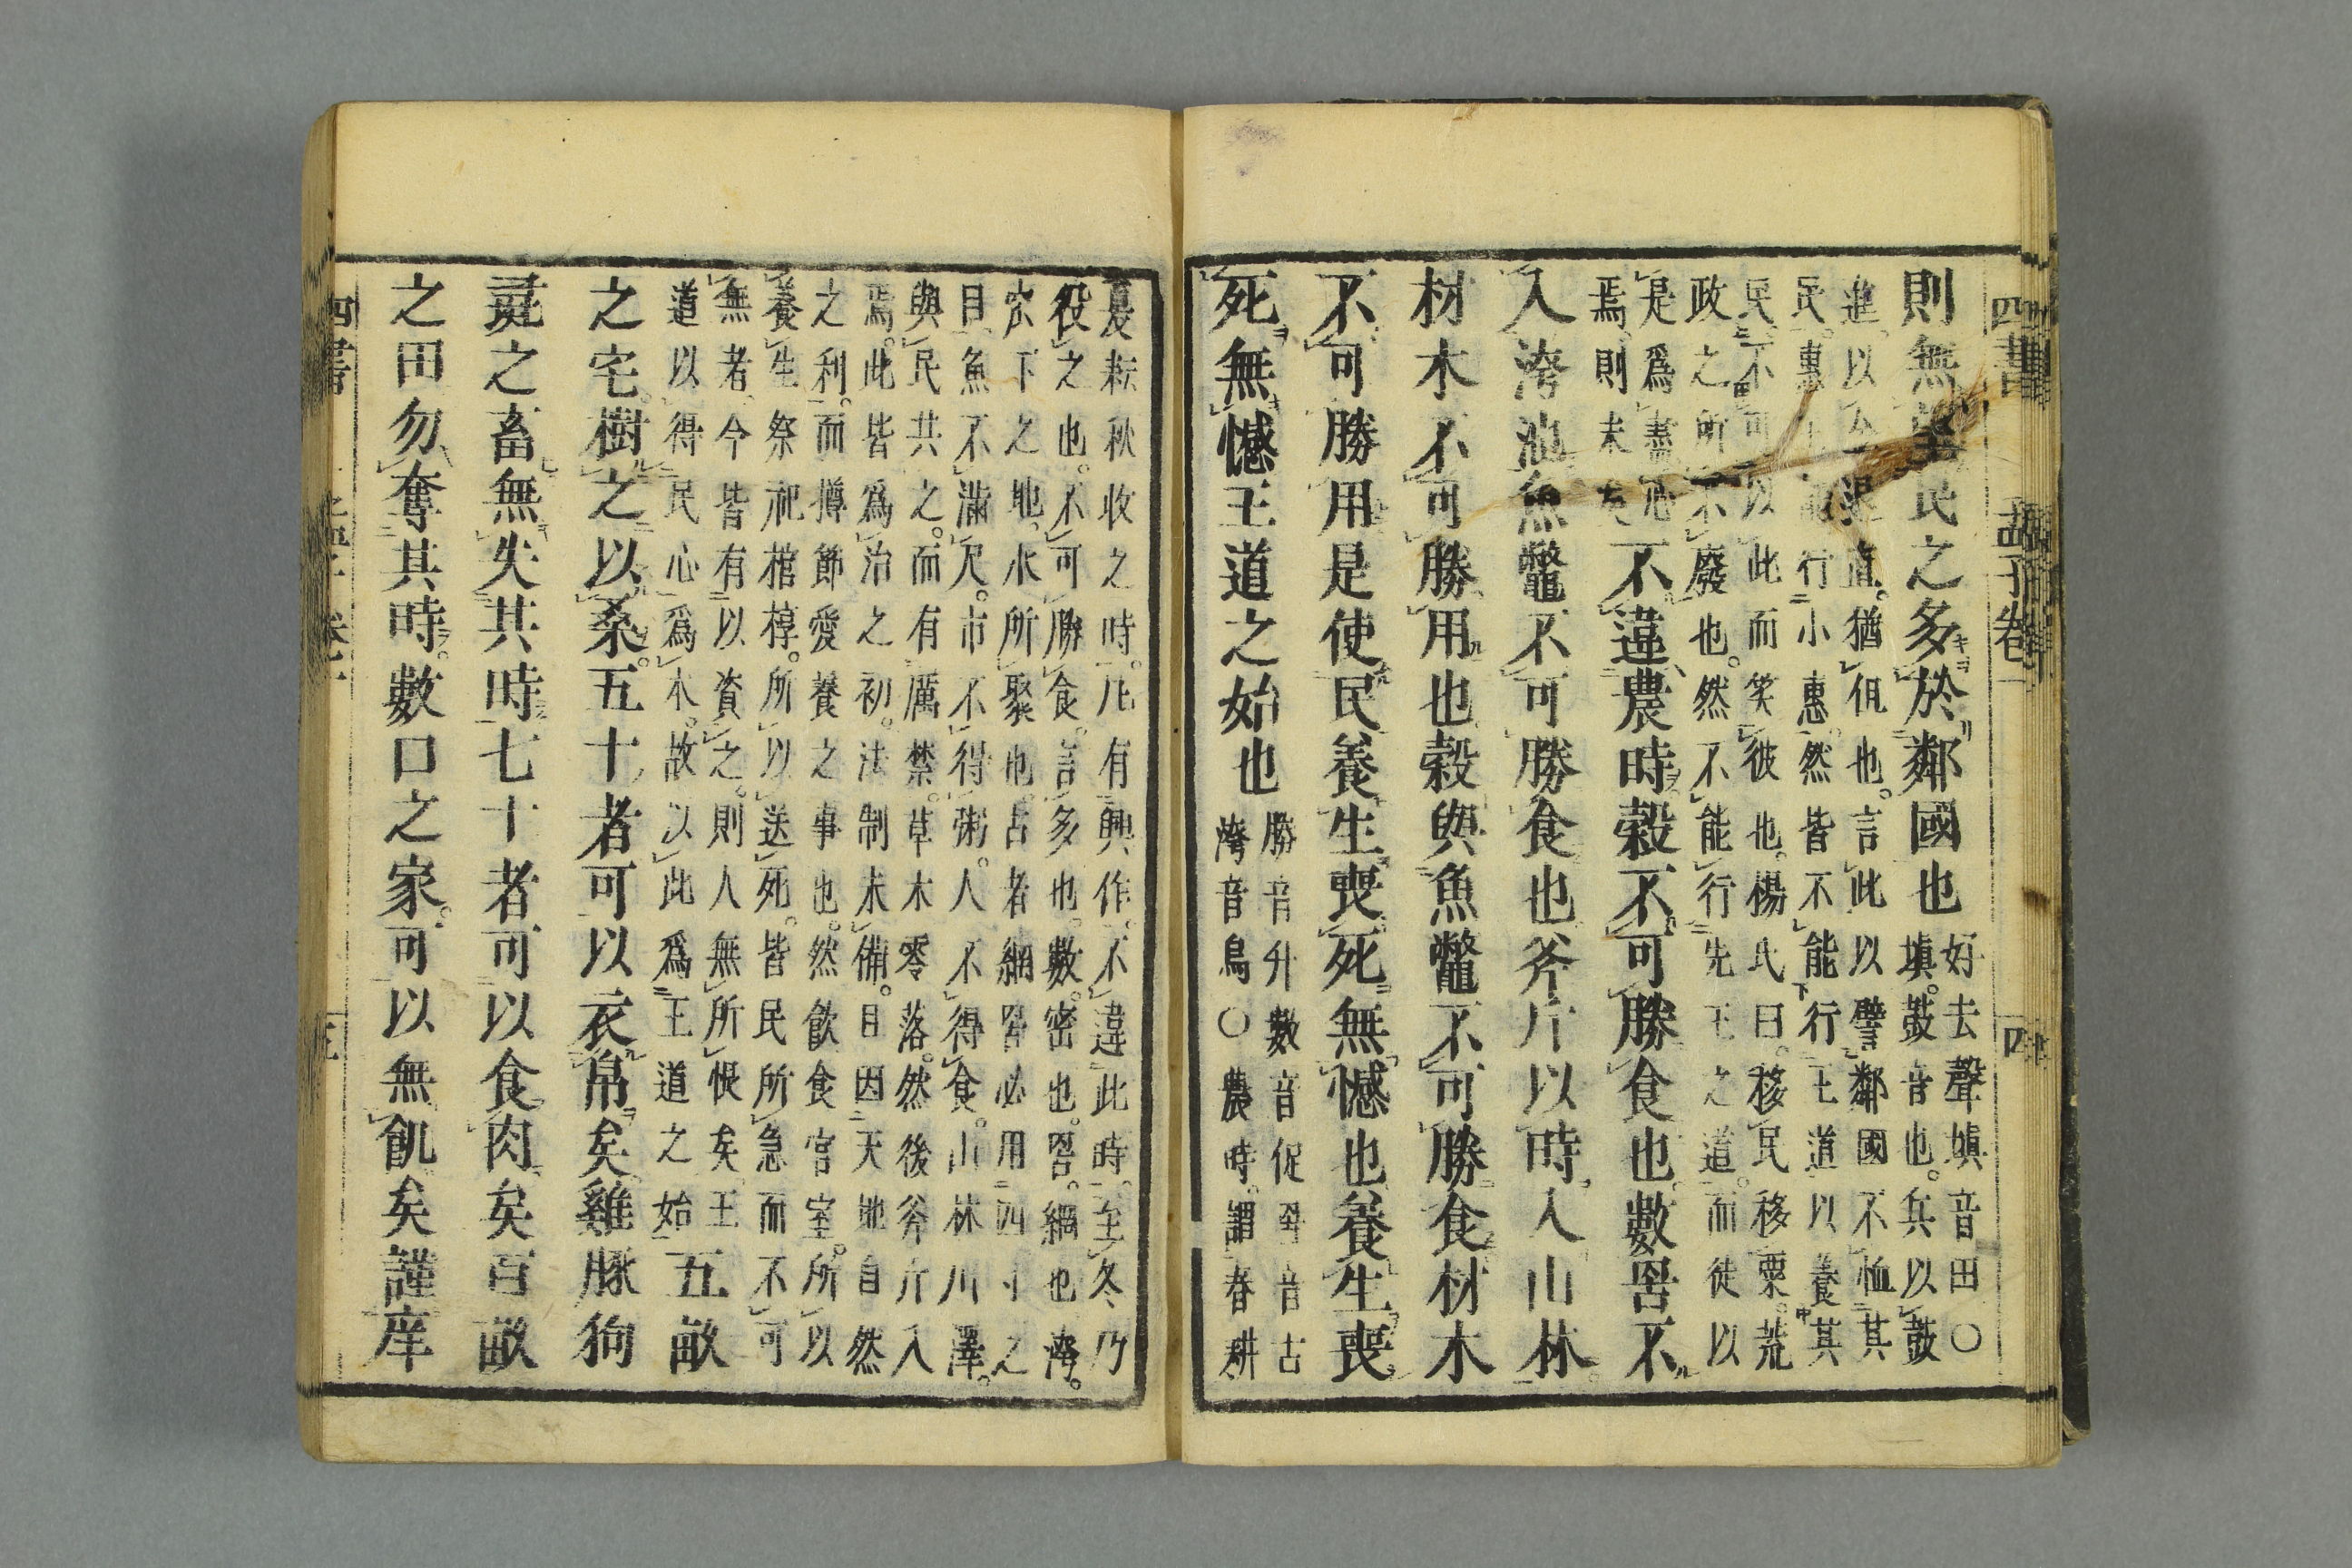 四書 孟子卷一 四
則無望民之多於鄰國也
好去聲塡音田〇
塡。鼓音也。兵以鼓
進。以金退。直。猶但也。言此以譬鄰國不恤其
民。惠王能行小惠。然皆不能行王道以養其
民。不可以此而笑彼也。楊氏曰。移民移粟。荒
政之所不廢也。然不能行先王之道。而徒以
是爲盡心
焉。則末矣
不違農時穀不可勝食也數罟不
入洿池魚鼈不可勝食也斧斤以時入山林
材木不可勝用也穀與魚鼈不可勝食材木
不可勝用是使民養生喪死無憾也養生喪
死無憾王道之始也
勝音升數音促罟音古
洿音烏〇農時。謂春耕
夏耘秋收之時。凡有興作。不違此時。至冬乃
役之也。不可勝食。言多也。數。密也。罟。網也。洿。
窊下之地。水所聚也。古者網罟必用四寸之
目。魚不滿尺。市不得粥。人不得食。山林川澤。
與民共之。而有厲禁。草木零落。然後斧斤入
焉。此皆爲治之初。法制未備。且因天地自然
之利。而撙節愛養之事也。然飮食宮室。所以
養生。祭祀棺椁。所以送死。皆民所急而不可
無者。今皆有以資之。則人無所恨矣。王
道以得民心爲本。故以此爲王道之始
五畝
之宅。樹之以桑。五十者可以衣帛矣雞豚狗
彘之畜無失其時七十者可以食肉矣百畝
之田勿奪其時。數口之家。可以無飢矣謹庠
四書